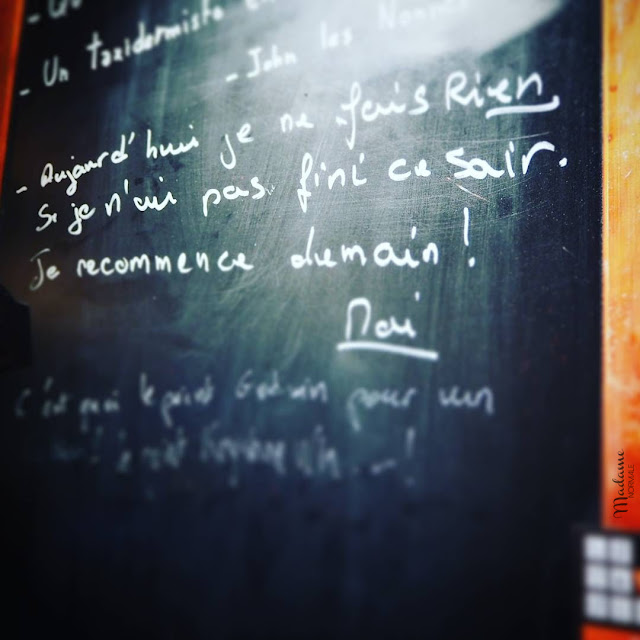 - Un taxidermiste
- John les
- Aujourd'hui je ne fais Rien
Si je n'ai pas fini ce soir.
Je recommence demain !
Moi
C'est quoi le point Godwin pour un
Madame